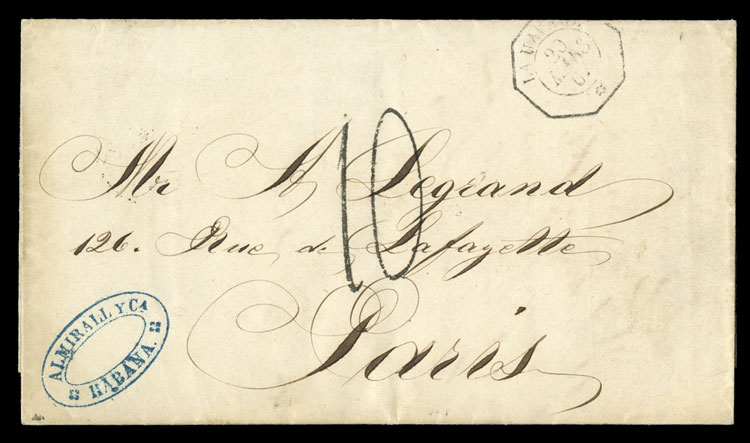 LA HAVANE
20
MARS
6
10
Mr A Legrand
126. Rue de Lafayette
Paris
ALMIRALL Y CA
HABANA.